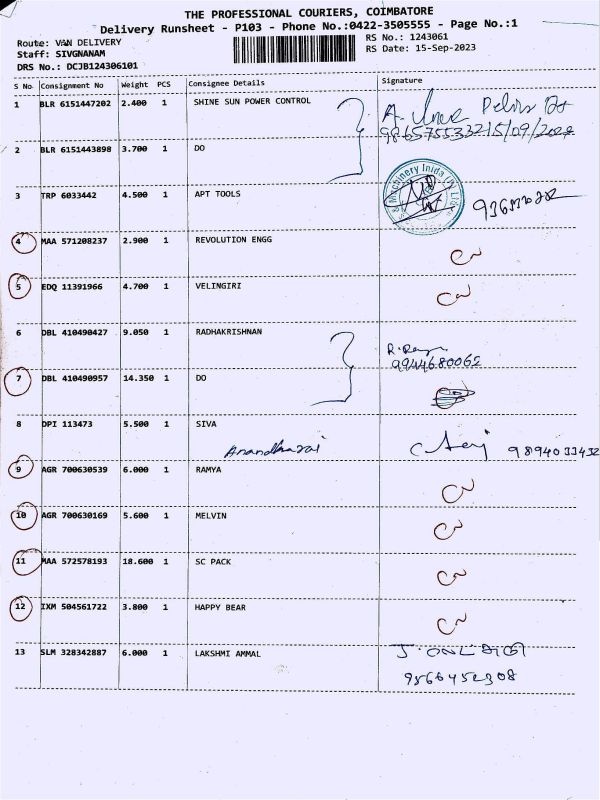 THE PROFESSIONAL COURIERS, COIMBATORE
Delivery Runsheet - P103 - Phone No.:0422-3505555 - Page No.:1
Route: VAN DELIVERY RS No.: 1243061
Staff: SIVGNANAM RS Date: 15-Sep-2023
DRS No.: DCJB124306101
S No Consignment No Weight PCS Consignee Details Signature
1 BLR 6151447202 2.400 1 SHINE SUN POWER CONTROL
2 BLR 6151443898 3.700 1 DO
3 TRP 6033442 4.500 1 APT TOOLS
4 MAA 571208237 2.900 1 REVOLUTION ENGG
5 EDQ 11391966 4.700 1 VELINGIRI
6 DBL 410490427 9.050 1 RADHAKRISHNAN
9944680065
7 DBL 410490957 14.350 1 DO
8 DPI 113473 5.500 1 SIVA
Anandharaj 9894033432
9 AGR 700630539 6.000 1 RAMYA
10 AGR 700630169 5.600 1 MELVIN
11 MAA 572578193 18.600 1 SC PACK
12 IXM 504561722 3.800 1 HAPPY BEAR
13 SLM 328342887 6.000 1 LAKSHMI AMMAL